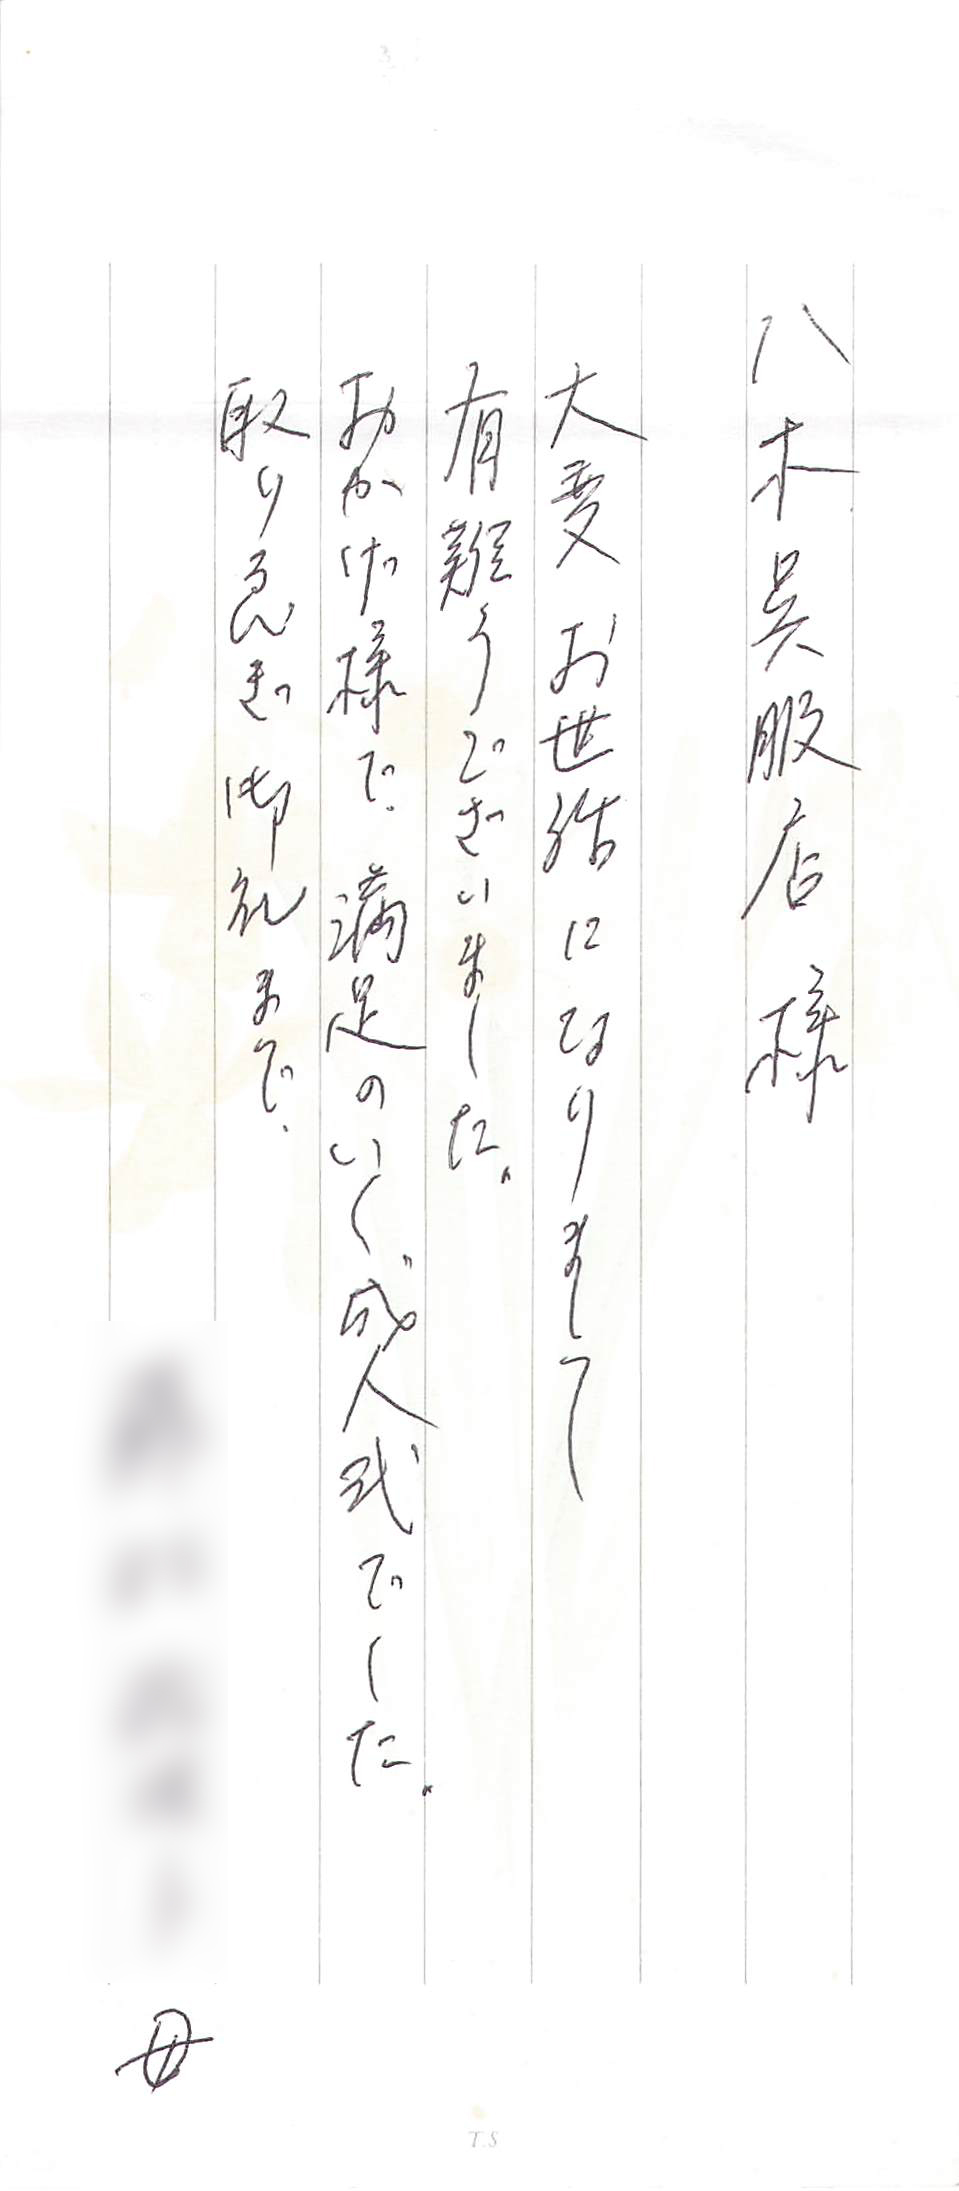 八木呉服店 様
大変お世話になりまして
有難うございました。
おかげ様で、満足のいく"成人式でした。
取り急ぎ御礼まで、
母
T.S